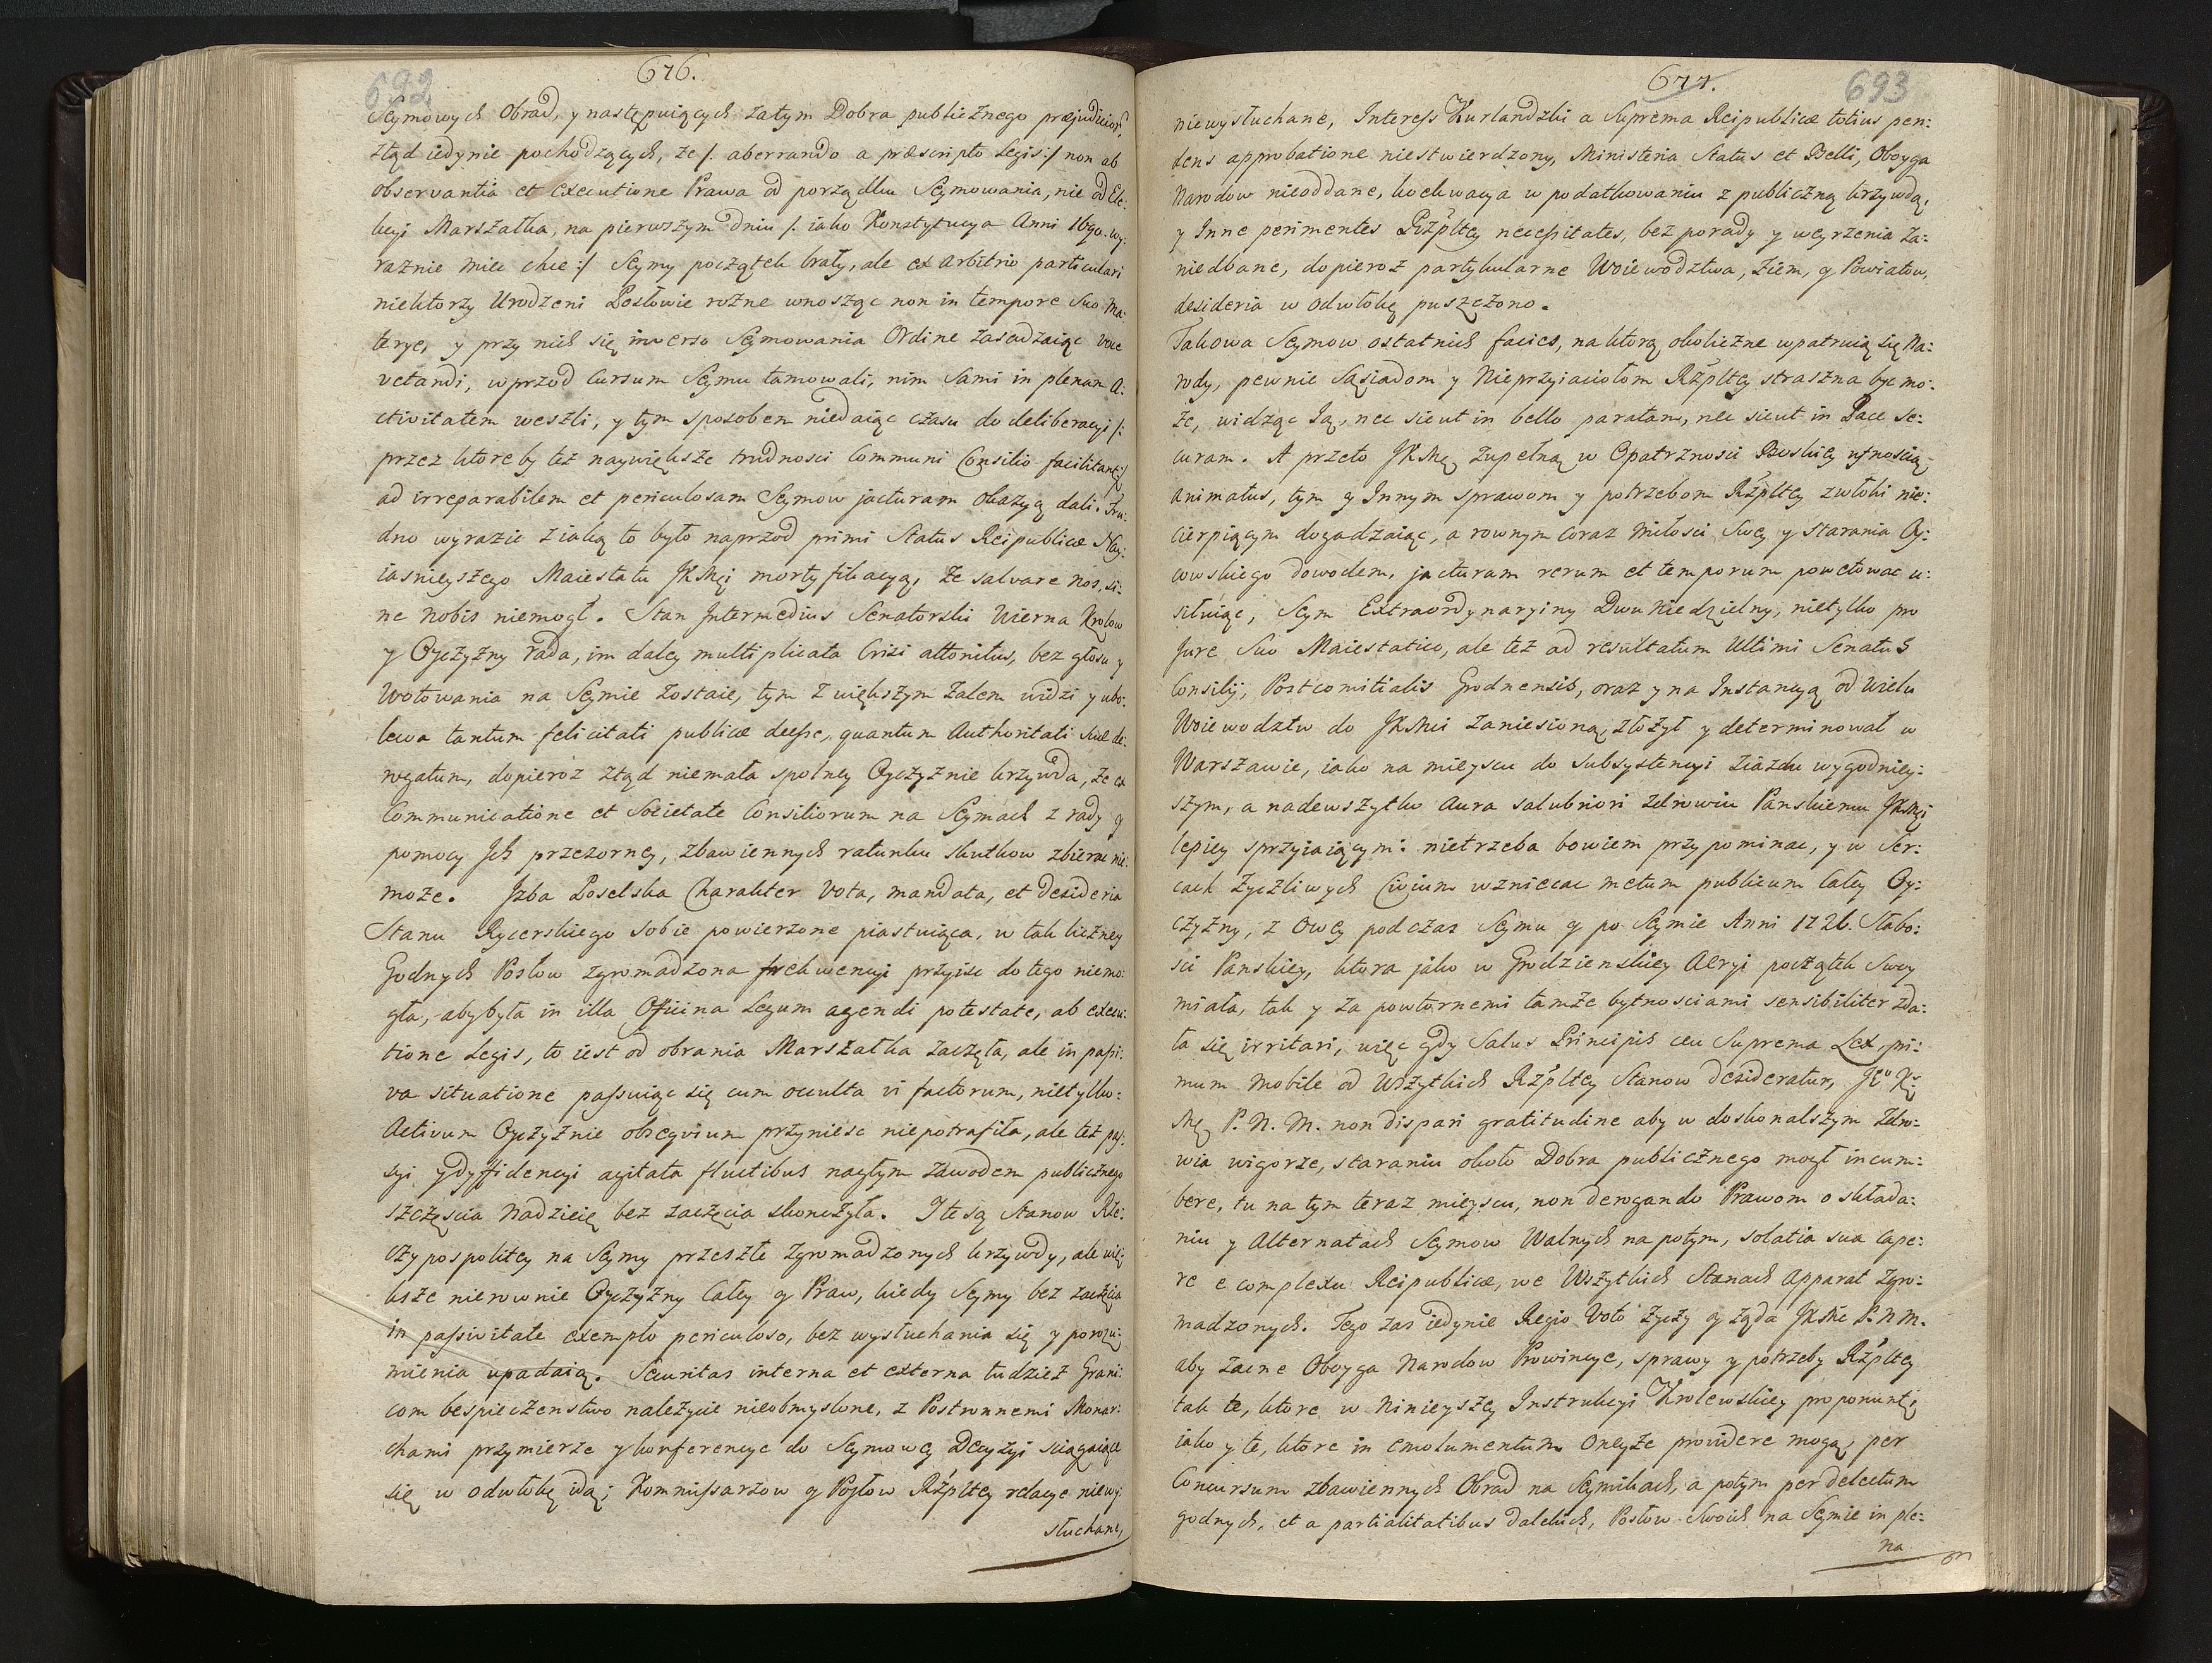 692
676.
Seymowych Obrad, y następuiących zatym Dobra publicznego præjudiciow,
ztąd iedynie pochodzących, że /: aberrando a præscripto Legis :/ non ab
observantia et Executione Prawa od porządku Seymowania, nie od Ele:
kcyi Marszałka, na pierwszym dniu /: iako Konstytucya Anni 1690. wy:
raznie miec chce :/ Seymy początek brały, ale ex arbitrio particulari
niektorzy Urodzeni Posłowie rożne wnosząc non in tempore suo Ma:
terye, y przy nich się inverso Seymowania Ordine zasadzaiąc voce
vetandi, wprzod Cursum Seymu tamowali, nim sami in plenam A:
ctivitatem weszli, y tym sposobem niedaiąc czasu do deliberacyi /:
przez ktoreby też naywiększe trudnosci Communi Consilio facilitant. :/
ad irreparabilem et periculosam Seymow jacturam Okazyą dali. Tru:
dno wyrazic z iaką to było naprzod primi Status Reipublicæ Nay:
iasnieyszego Maiestatu JKMci mortyfikacyą, że salvare nos, si:
ne nobis niemogł. Stan Intermedius Senatorski Wierna Krolow
y Oyczyzny rada, im daley multiplicata Crisi attonitus, bez głosu y
Wotowania na Seymie zostaie, tym z większym żalem widzi y ubo:
lewa tantum felicitati publicæ deesse, quantum Authoritati suæ de:
rogatum, dopieroz ztąd niemała spolney Oyczyznie krzywda, że ex
Communicatione et Societate Consiliorum na Seymach z rady y
pomocy Jch przezorney, zbawiennych ratunku skutkow zbierac nie:
może. Jzba Poselska Charakter Vota, mandata, et desideria
Stanu Rycerskiego sobie powierzone piastuiąca, w tak liczney
Godnych Posłow zgromadzona frekwencyi przyisc do tego niemo:
gła, aby była in illa Officina Legum agendi potestate, ab execu:
tione Legis, to iest od obrania Marszałka zaczęta, ale in passi:
va situatione passuiąc się cum occulta vi factorum, nietylko:
Activum Oyczyznie obsequium przyniesc niepotrafiła, ale też pas:
syi y dyffidencyi agitata fluctibus nagłym zawodem publicznego
szczęscia Nadzieię bez zaczęcia skonczyła. I te są Stanow Rze:
czypospolitey na Seymy przeszłe zgromadzonych krzywdy, ale wię:
ksze nierownie Oyczyzny Całey y Praw, kiedy Seymy bez zaczęcia
in passivitate exemplo periculoso, bez wysłuchania się y porozu:
mienia upadaią. Securitas interna et externa tudziesz Grani:
com bespieczenstwo należycie nieobmyslone, z Postronnemi Monar:
chami przymierze y konferencye do Seymowey Decyzyi sciągaiące
się w odwłokę idą; Kommissarzow y Posłow Rzpltey relacye niewy:
słuchane,
693
677.
niewysłuchane, Interess Kurlandzki a Suprema Reipublicæ totius pen:
dens approbatione niestwierdzony, Ministeria Status et Belli, Oboyga
Narodow nieoddane, koekwacya w podatkowaniu z publiczną krzywdą,
y Inne perimentes Rzpltey necessitates, bez porady y weyrzenia za:
niedbane, dopieroz partykularne Woiewodztwa, Ziem, y Powiatow,
desideria w odwłokę puszczono.
Takowa Seymow ostatnich facies, na ktorą okoliczne wpatruią się Na:
rody, pewnie Sąsiadom y Nieprzyiaciołom Rzpltey straszna byc mo:
że, widząc Ją, nec sicut in bello paratam, nec sicut in Pace se:
curam. A przeto JKMć zupełną w Opatrznosci Boskiey ufnoscią
animatus, tym y Innym sprawom y potrzebom Rzpltey zwłoki nie:
cierpiącym dogadzaiąc, a rownym coraz miłosci Swey y starania Oy:
cowskiego dowodem, jacturam rerum et temporum powetowac u:
siłuiąc, Seym Extraordynaryiny Dwu Niedzielny, nietylko pro
Jure Suo Maiestatico, ale też ad resultatum Ultimi Senatus
Consilij, Postcomitialis Grodnensis, oraz y na Instancyą od wielu
Woiewodztw do JKMci zaniesioną, złożył y determinował w
Warszawie, iako na mieyscu do subsystencyi ziazdu wygodniey:
szym, a nadewszytko aura salubriori zdrowiu Panskiemu JKMci
lepiey sprzyiaiącym: nietrzeba bowiem przypominac, y w ser:
cach życzliwych Civium wzniecac metum publicum Całey Oy:
czyzny, z Owey podczas Seymu y po Seymie Anni 1726. słabo:
sci Panskiey, ktora jako w Grodzienskiey Aeryi początek swoy
miała, tak y za powtornemi tamże bytnosciami sensibiliter zda:
ła się irritari, więc gdy Salus Principis ceu Suprema Lex, pri:
mum mobile od Wszytkich Rzpltey Stanow desideratur, Jego K:
Mć P. N. M. non dispari gratitudine aby w doskonalszym zdro:
wia wigorze, staraniu około Dobra publicznego mogł incum:
bere, tu na tym teraz mieyscu, non derogando Prawom o składa:
niu y Alternatach Seymow Walnych na potym, solatia sua cape:
re e complexu Reipublicæ, we Wszytkich Stanach apparat zgro:
madzonych. Tego zas iedynie Regio Voto życzy y żąda JKMć P. N. M.
aby zacne Oboyga Narodow Prowincye, sprawy y potrzeby Rzpltey
tak te, ktore w Ninieyszey Instrukcyi Krolewskiey proponunt.,
iako y te, ktore in emolumentum Oneyże providere mogą, per
Concursum zbawiennych Obrad na Seymikach, a potym per delectum
godnych, et a partialitatibus dalekich, Posłow swoich na Seymie in ple:
na